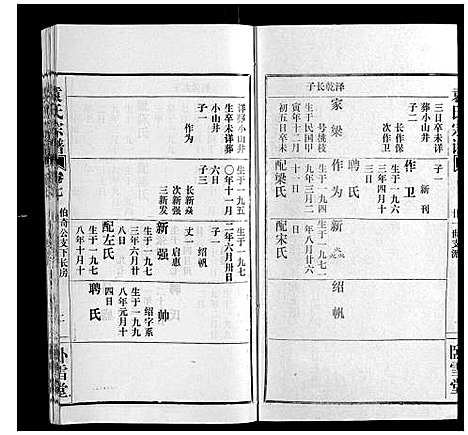 袁氏宗谱
三日卒未详
葬小山井
子二
长作保
次作卫
作卫
生于一九四
三年四月十
新刊
聘氏
泽乾长子
家梁
号洗枝
生于民国甲
寅年十二月
初五日卒未
作为
生于一九四
九年三月二
十日
配梁氏
新焱
生于一九七一
年八月廿六
配宋氏
绍帆
卧雪堂
详葬小山井
生卒未详葬
小山井
子一
作为
生于一九五
〇年十一月
六日
子三
长新焱
次新强
三新发
生于一九七
二年六月卅日
绍帆
丈一
启惠
新强
生于一九七
三年六月廿
八日
配左氏
生于一九七
八年十月十
帅
绍字系
生于一九九
八年元月十
四日
聘氏
袁氏宗谱
卷七
伯奇公支下长房
卧雪堂